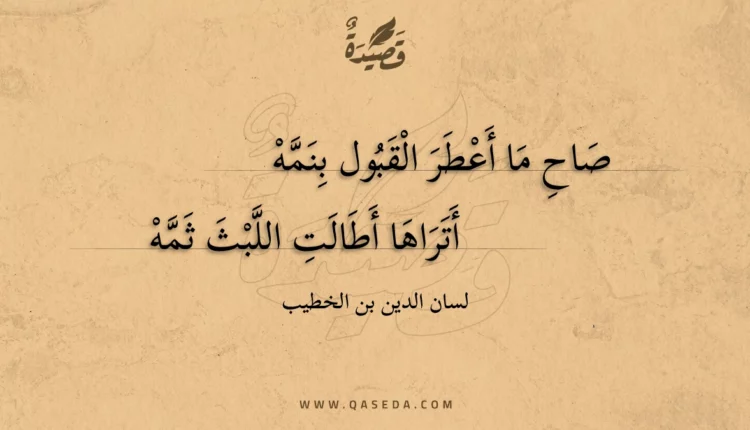 قَصِيْدَةٌ
صَاحِ مَا أَعْطَرَ الْقَبُول بِنَمَّهْ
أَتَرَاهَا أَطَالَتِ اللَّبْثَ ثَمَّهْ
لسان الدين بن الخطيب
WWW.QASEDA.COM